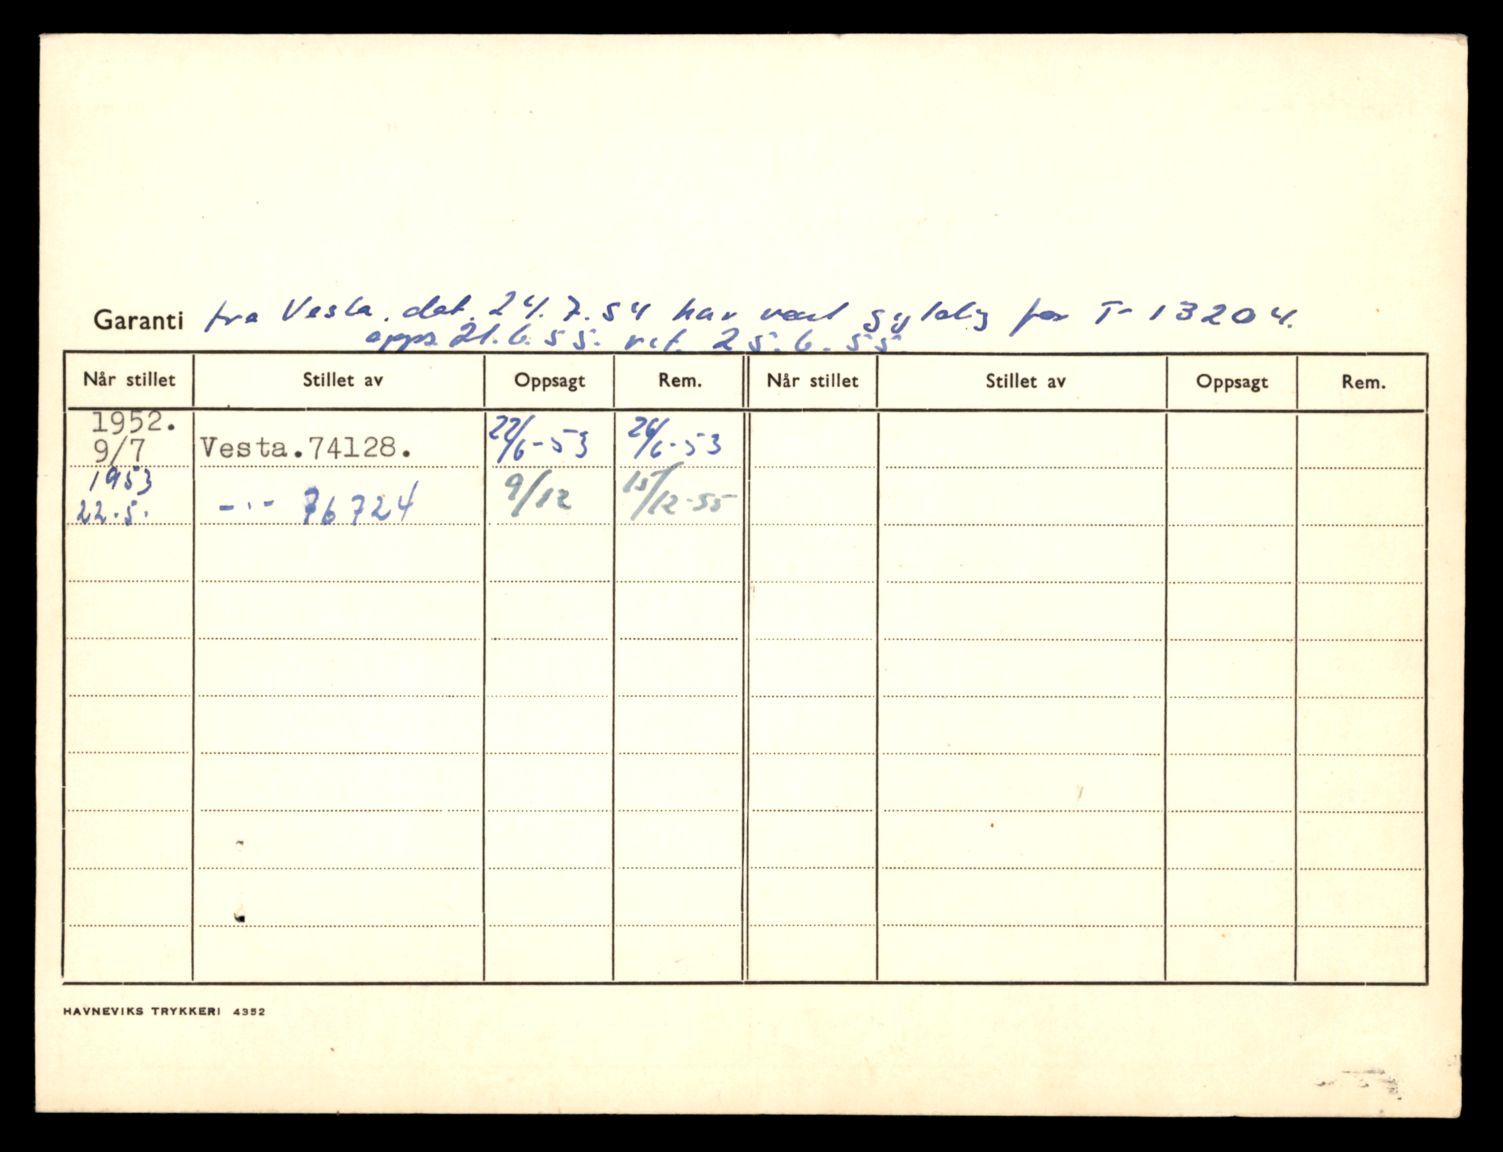 Garanti fra Vesta. dat. 24.7.54 har vært gyldig for T-13204.
opps. 21.6.55. ret. 25.6.55.
Når stillet Stillet av Oppsagt Rem. Når stillet Stillet av Oppsagt Rem.
1952.
9/7 Vesta.74128. 22/6-53 26/6-53
1953
22.5. -"- 76724 9/12 15/12-55
HAVNEVIKS TRYKKERI 4352